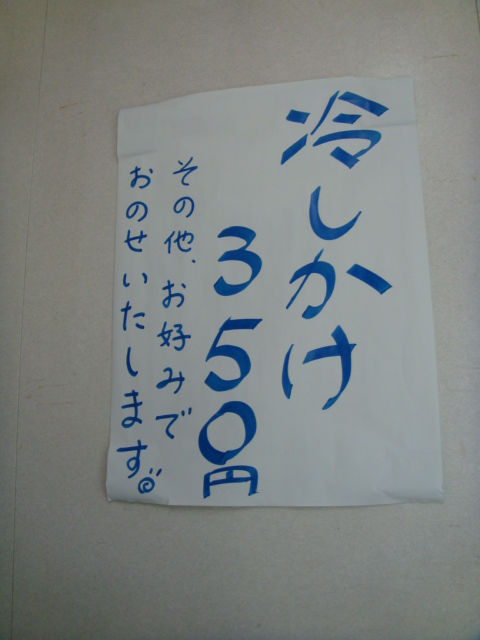 冷しかけ
350円
その他、お好みで
おのせいたします。